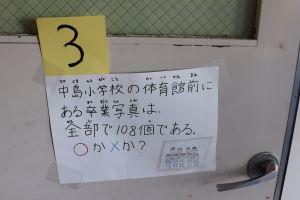 3
中島小学校の体育館前に
ある卒業写真は、
全部で108個である。
○か×か？